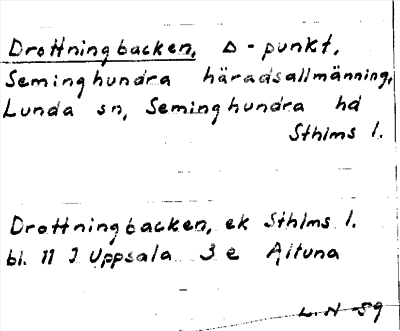 Drottningbacken, Δ-punkt,
Seminghundra häradsallmänning,
Lunda sn, Seminghundra hd
Sthlms l.
Drottningbacken, ek Sthlms l.
bl. 11 J Uppsala 3 e Ajtuna
L.H -59